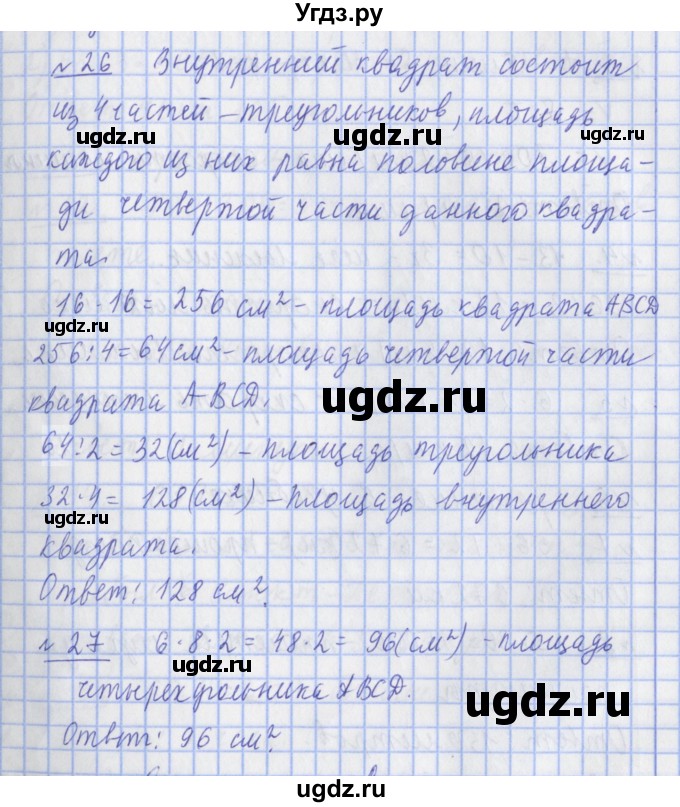 Угдз.ру
№ 26 Внутренний квадрат состоит
из 4 частей – треугольников, площадь
ugdz.ru ugdz.ru
каждого из них равна половине площа-
ди четвертой части данного квадра-
та.
16 · 16 = 256 см² – площадь квадрата ABCD
ugdz.ru
256 : 4 = 64 см² – площадь четвертой части
квадрата ABCD.
ugdz.ru
64 : 2 = 32 (см²) – площадь треугольника
32 · 4 = 128 (см²) – площадь внутреннего
ugdz.ru ugdz.ru
квадрата.
Ответ: 128 см².
№ 27 6 · 8 · 2 = 48 · 2 = 96 (см²) – площадь
ugdz.ru ugdz.ru
четырехугольника ABCD.
Ответ: 96 см².
ugdz.ru